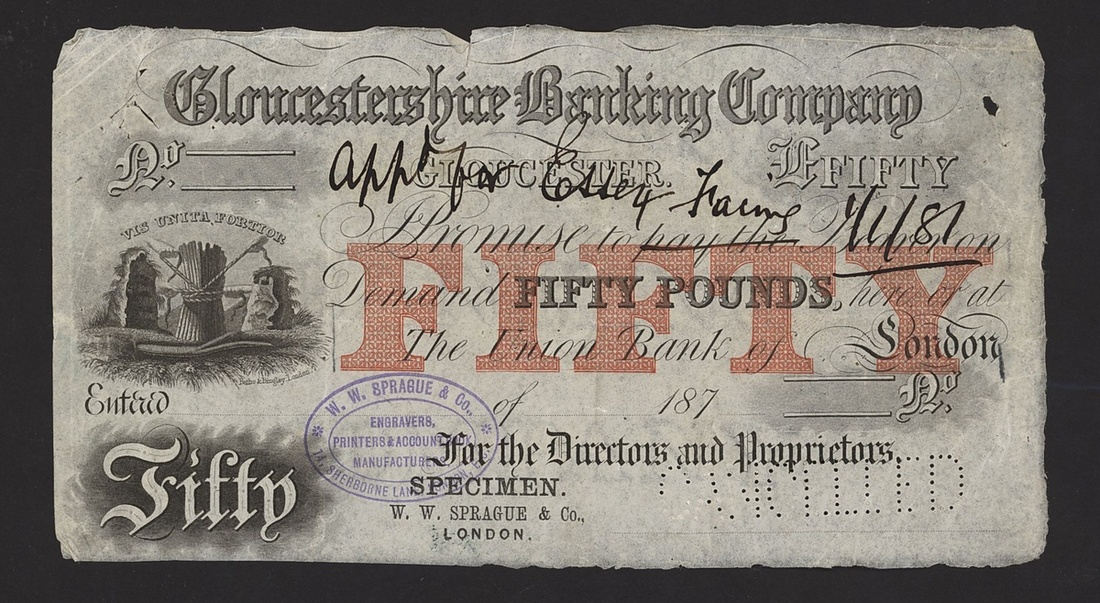 Gloucestershire Banking Company
No.
GLOUCESTER.
£FIFTY
appd for Essex
1/1/81
VIS UNITA FORTIOR
I Promise to pay the Bearer on
Demand FIFTY POUNDS, here or at
The Union Bank of London
FIFTY
Entered
of 187
No.
W. W. SPRAGUE & Co.,
ENGRAVERS,
PRINTERS & ACCOUNT BOOK
MANUFACTURERS
14, SHERBORNE LANE, LONDON, E.C.
For the Directors and Proprietors.
Fifty
SPECIMEN.
W. W. SPRAGUE & Co.,
LONDON.